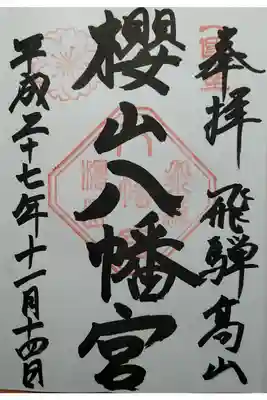 奉拝
飛騨高山
櫻山八幡宮
平成二十七年十一月十四日